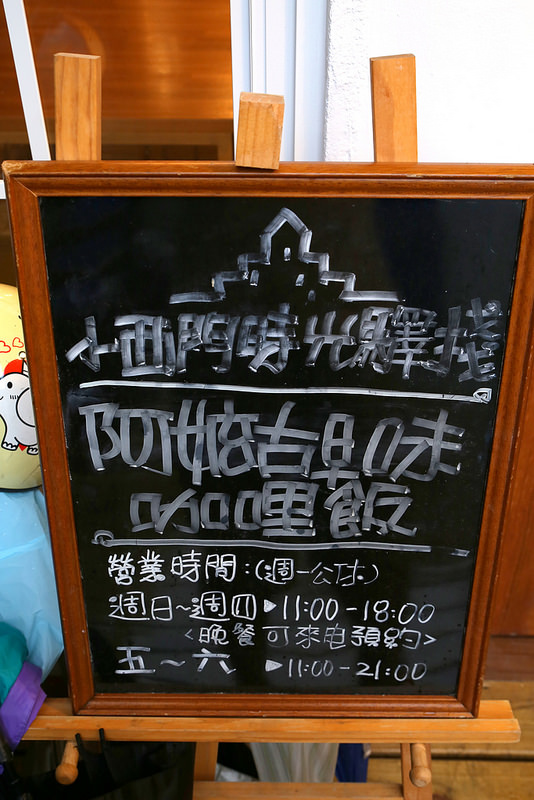 小西門時光驛棧
阿嬤古早味
咖哩飯
營業時間:(週一公休)
週日~週四▶11:00-18:00
<晚餐可來电預約>
五~六 ▶11:00-21:00